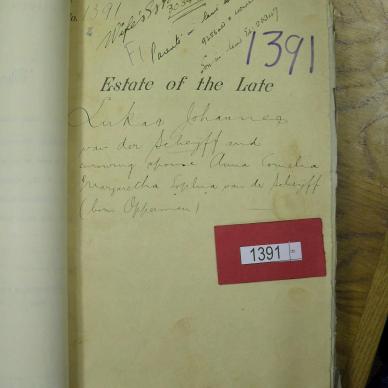 No. 1391
Wife's
Parents -
1391
Estate of the Late
Lukas Johannes
van der Schyff and
surviving spouse Anna Cornelia
Margaretha Sophia van der Schyff
(born Opperman)
1391